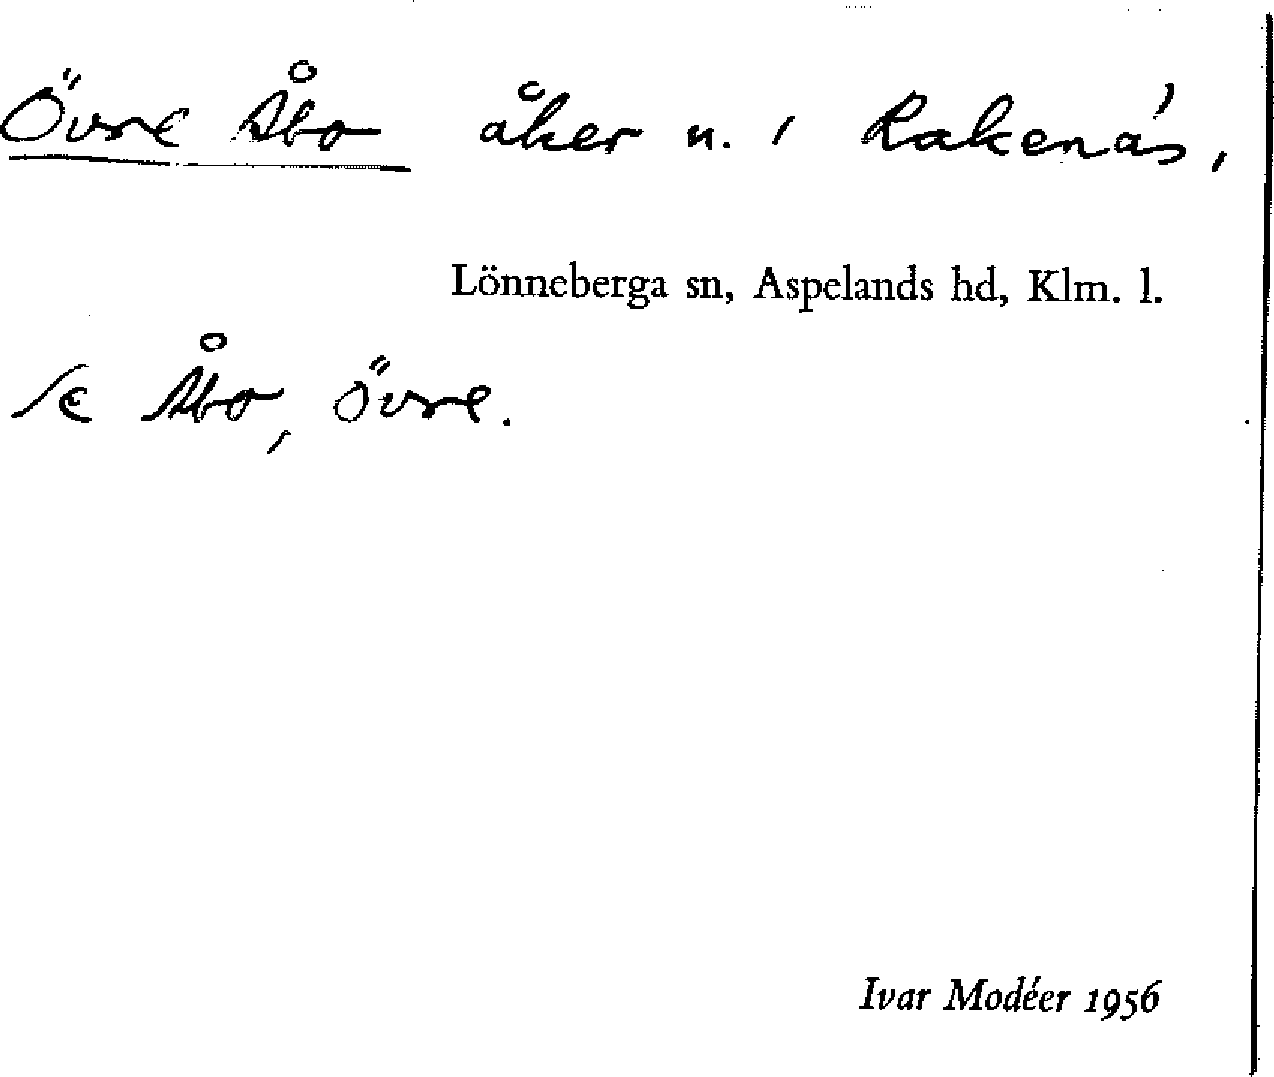 Övre Åbo åker n. i Rakenäs,
Lönneberga sn, Aspelands hd, Klm. l.
se Åbo, Övre.
Ivar Modéer 1956